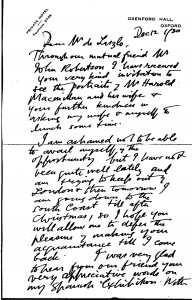 OXENFORD HALL
OXFORD
PRIVATE HOTEL
Dec 12 1920
Dear Mr de Laszlo,
Through our mutual friend Mr
John Robertson I have received
your very kind invitation to
see the portraits of Mr Harold
Macmillan and his wife &
your further kindness in
asking my wife & myself to
lunch some time.
I am ashamed not to be able
to avail myself of the
opportunity but I have not
been quite well lately and
am trying to keep out of
London & then tomorrow I
am going down to the
South Coast till after
Christmas, so I hope you
will allow me to defer the
pleasure of making your
acquaintance till I come
back.
I was very glad
to hear from our friend your
very appreciative words on
my Spanish Exhibition Notes